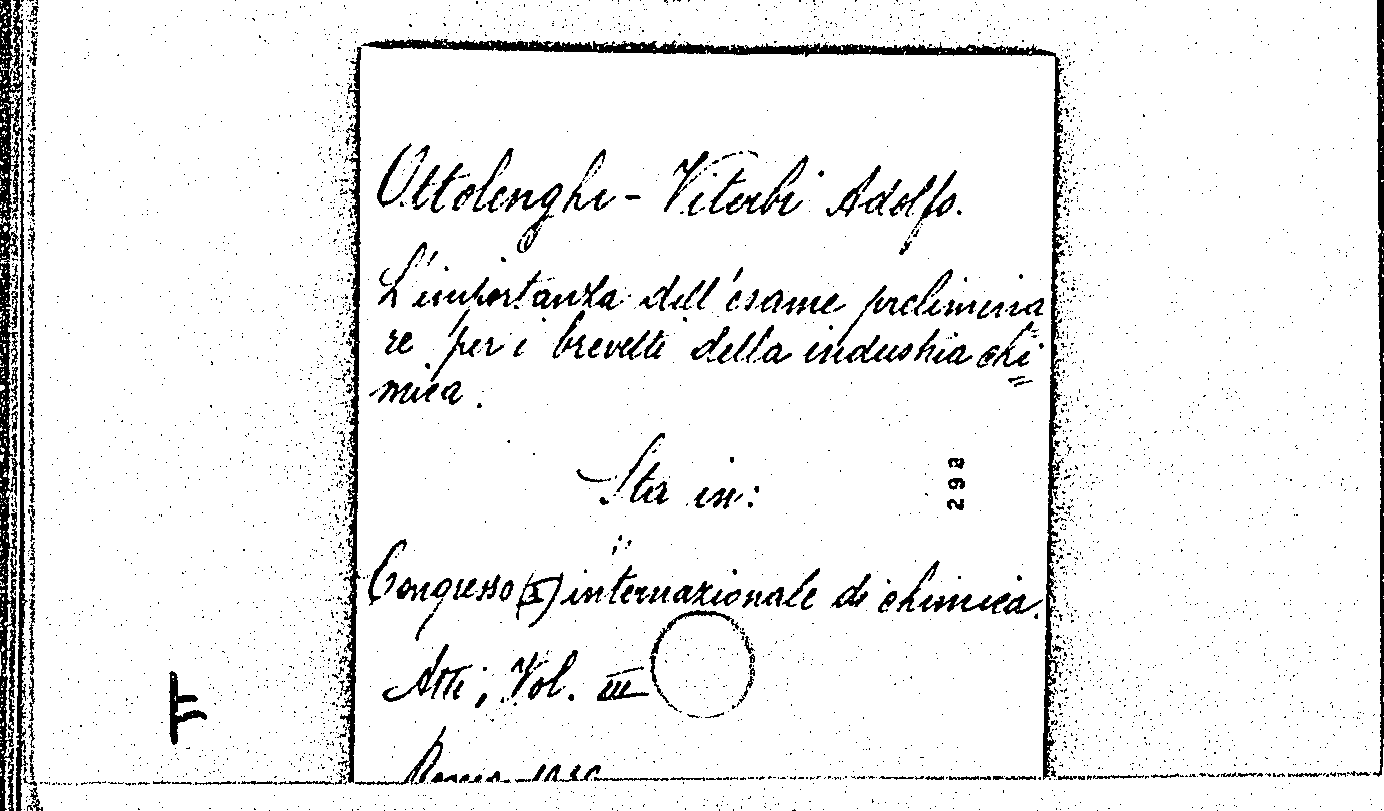 Ottolenghi - Viterbi Adolfo.
L'importanza dell'esame prelimina
re per i brevetti della industria chi
mica.
Sta in:
293
Congresso (X) internazionale di chimica.
Atti, Vol. III
Roma